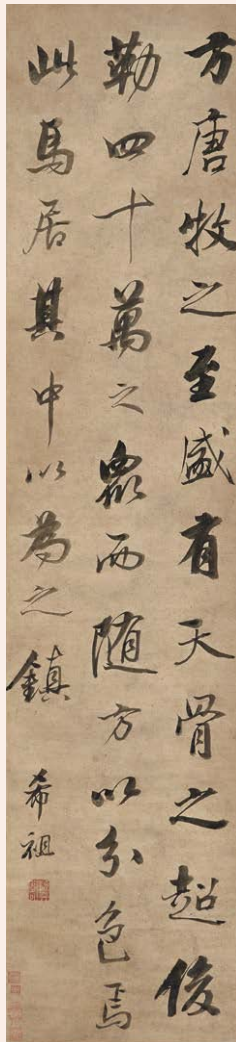 方唐牧之至盛有天骨之超俊
勒四十萬之眾而随方以分色焉
此馬居其中以為之鎮
希祖